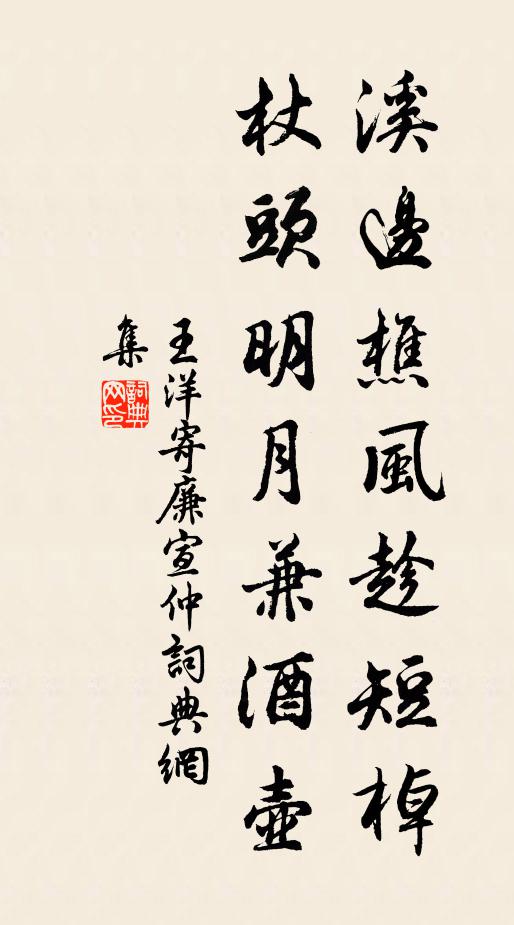 溪邊樵風趁短棹
杖頭明月兼酒壺
王洋寄廉宣仲詞典網
集
詞典網印